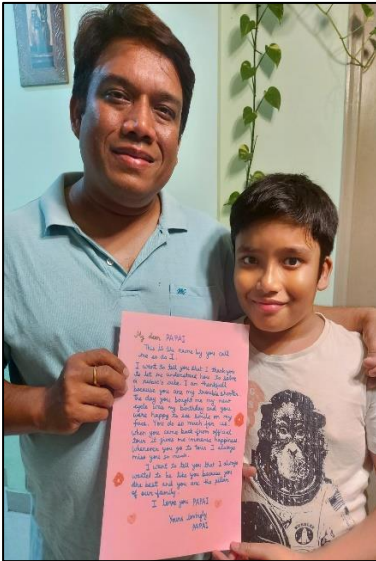 My dear PAPAI
This is the name by you call
me so do I.
I want to tell you that I thank you
to let me understand how to solve
a rubic's cube. I am thankful
because you are my trouble shooter.
The day you bought me my new
cycle was my birthday and you
were happy to see smile on my
face. You do so much for us
when you come back from official
tour. It gives me immense happiness
whenever you go to Tour I always
miss you so much.
I want to tell you that I always
wanted to be like you because you
are best and you are the pillar
of our family.
I Love you PAPAI
Yours lovingly
PAPAI